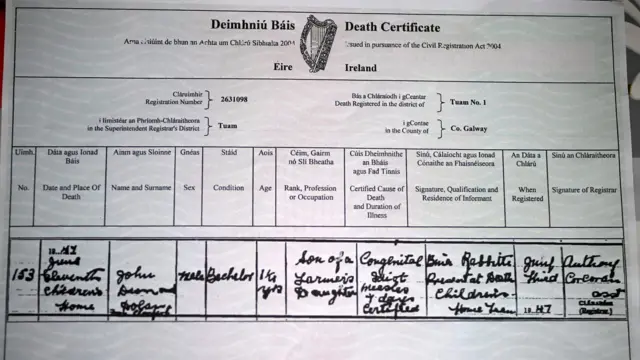 Deimhniú Báis
Death Certificate
Arna eisiúint de bhun an Achta um Chlárú Sibhialta 2004
Issued in pursuance of the Civil Registration Act 2004
Éire
Ireland
Cláruimhir
Registration Number
2631098
Bás a Chláraíodh i gCeantar
Death Registered in the district of
Tuam No. 1
in the Superintendent Registrar's District
Tuam
i gContae
in the County of
Co. Galway
Uimh. Dáta agus Ionad Báis Ainm agus Sloinne Gnéas Stáid Aois Céim, Gairm nó Slí Bheatha Cúis Dheimhnithe an Bháis agus Fad Tinnis Síniú, Cáilíocht agus Ionad Cónaithe an Fhaisnéiseora An Dáta a Chlárú Síniú an Chláraitheora
No. Date and Place Of Death Name and Surname Sex Condition Age Rank, Profession or Occupation Certified Cause of Death and Duration of Illness Signature, Qualification and Residence of Informant When Registered Signature of Registrar
153
19.47
June
Eleventh
Children's
Home
John
Desmond
Dolan
Male
Bachelor
1¼
yrs
Son of a
Farmer's
Daughter
Congenital
Idiot
measles
7 days
Certified
Rabbitte
Present at Death
Children's
Home Tuam
Third
19.47
Anthony
Corcoran
asst
Cláraitheoir
(Registrar.)